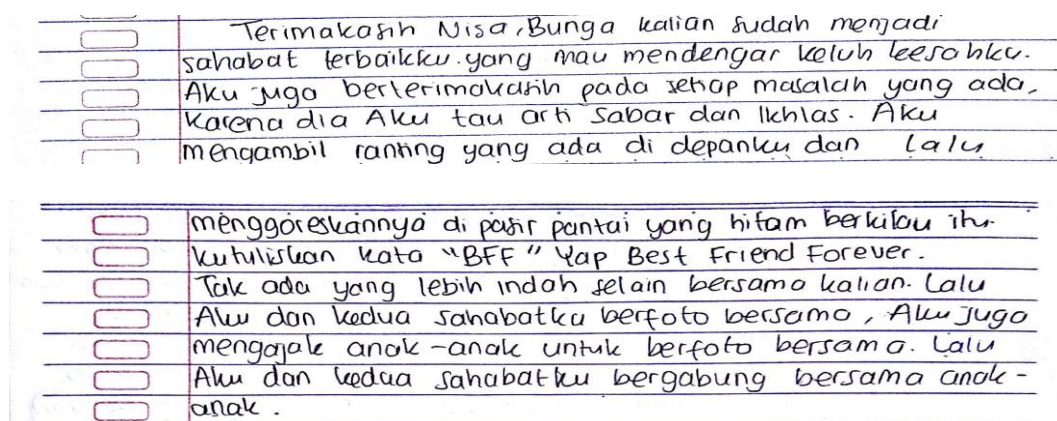 Terimakasih Nisa, Bunga kalian sudah menjadi
sahabat terbaikku. yang mau mendengar keluh kesahku.
Aku juga berterimakasih pada setiap masalah yang ada,
Karena dia Aku tau arti Sabar dan Ikhlas. Aku
mengambil ranting yang ada di depanku dan Lalu
menggoreskannya di pasir pantai yang hitam berkilau itu.
kutuliskan kata "BFF" Yap Best Friend Forever.
Tak ada yang lebih indah selain bersama kalian. Lalu
Aku dan kedua sahabatku berfoto bersama, Aku juga
mengajak anak-anak untuk berfoto bersama. Lalu
Aku dan kedua sahabatku bergabung bersama anak-
anak.